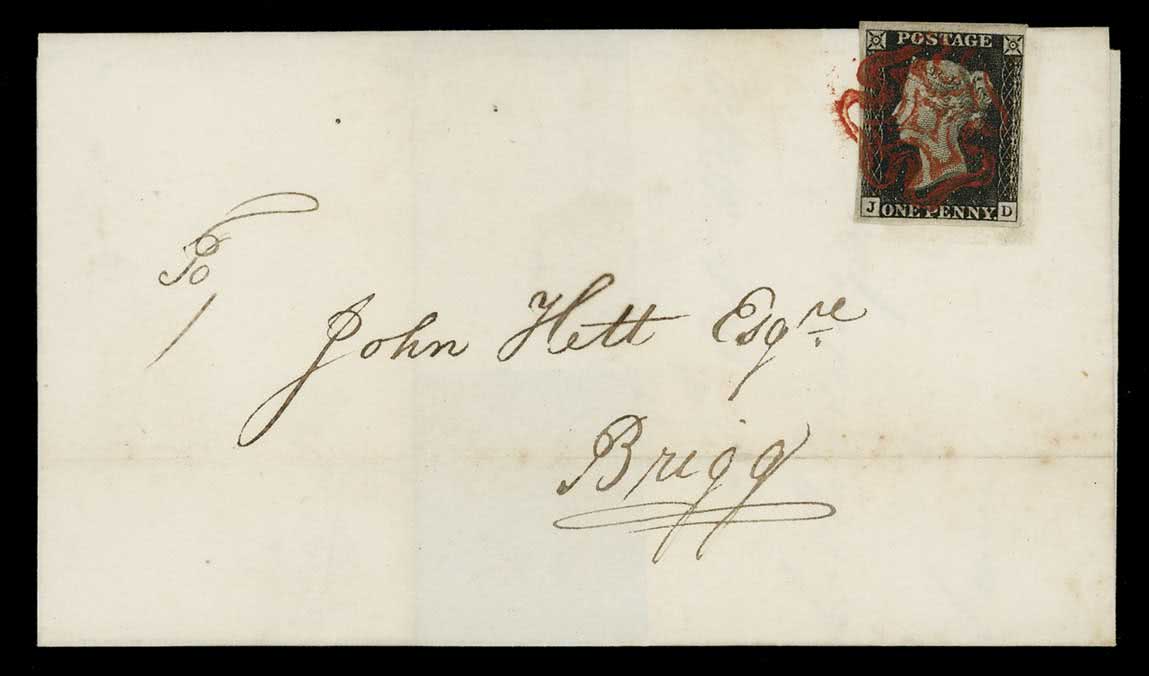 POSTAGE
J ONE PENNY. D
To
John Hett Esqre
Brigg